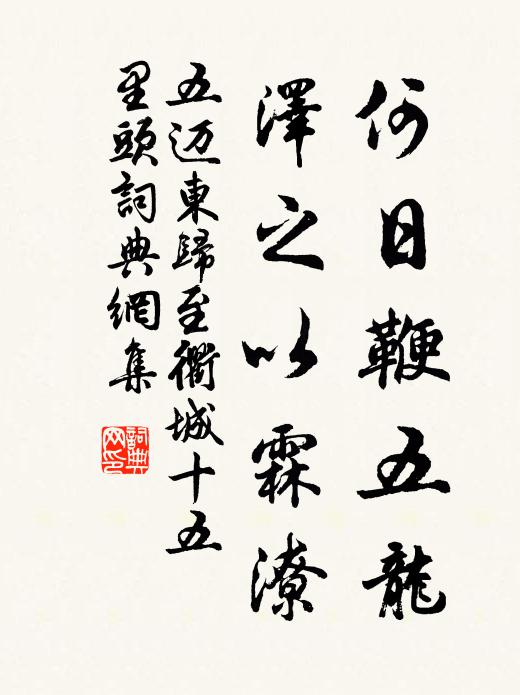 何日鞭五龍
澤之以霖潦
五迈東歸至衢城十五
里頭詞典網集
詞典
网印